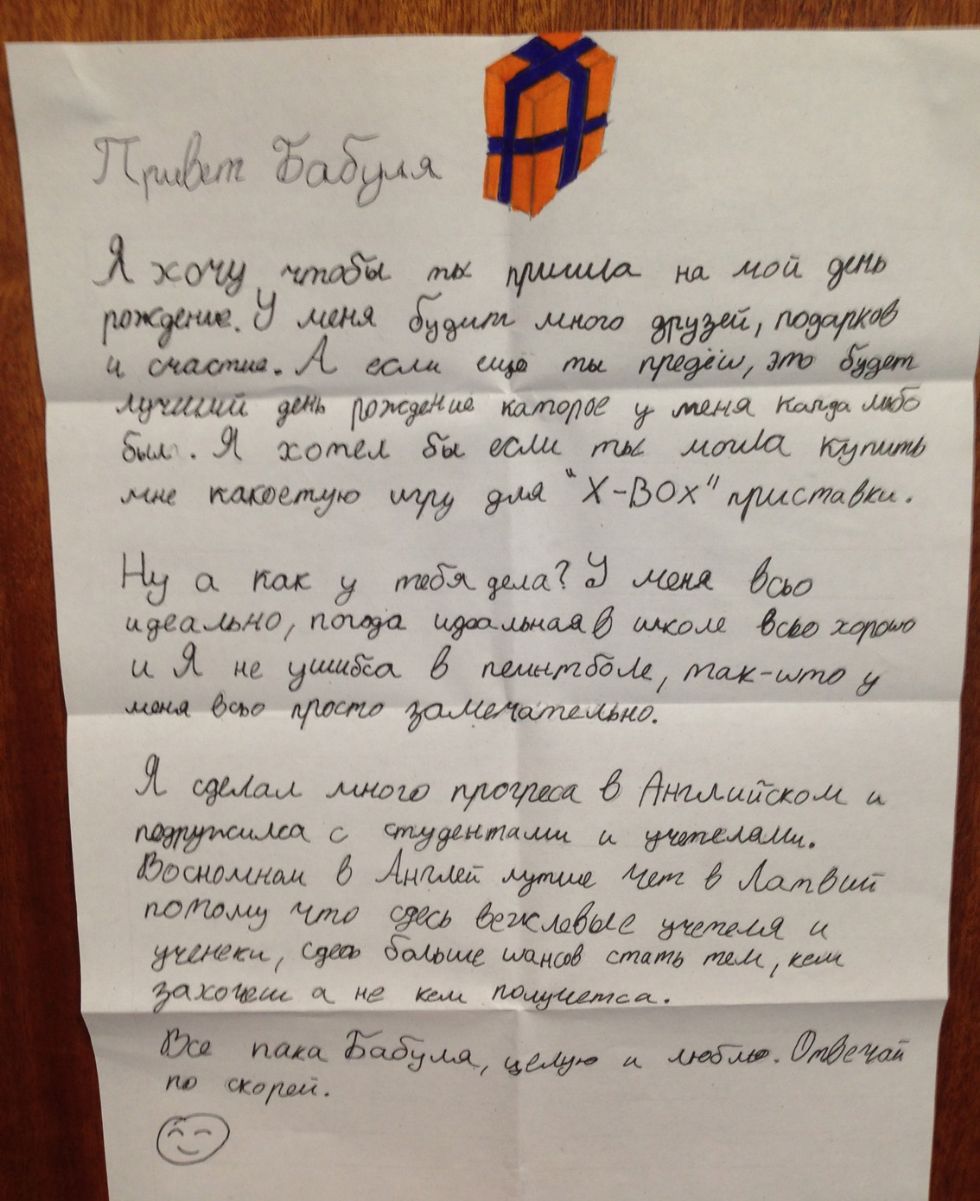 Привет Бабуля
Я хочу чтобы ты пришла на мой день
рождение. У меня будит много друзей, подарков
и счастие. А если ещё ты предёш, это будет
лучший день рождение каторое у меня кагда любо
был. Я хотел бы если ты могла купить
мне какоетую игру для "X-BOX" приставки.
Ну а как у тебя дела? У меня всьо
идеально, погода идеальная в школе всьо хорошо
и Я не ушибса в пеинтболе, так-што у
меня всьо просто замечательно.
Я сделал много прогреса в Английском и
подружилса с студентами и учетелами.
Восномном в Англей лутше чем в Латвий
потому что сдесь вежлевые учетеля и
ученеки, сдесь больше шансов стать тем, кем
захочеш а не кем получетса.
Все пака Бабуля, целую и люблю. Отвечай
по скорей.